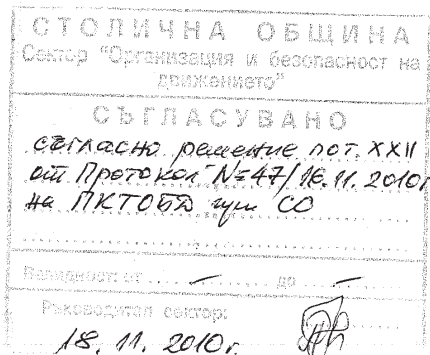 СТОЛИЧНА ОБЩИНА
Сектор "Организация и безопасност на
движението"
СЪГЛАСУВАНО
съгласно решение по т. XXII
от Протокол №47/16.11.2010г
на ПКТОБД при СО
Валидност: от – до –
Ръководител сектор:
18.11.2010г.